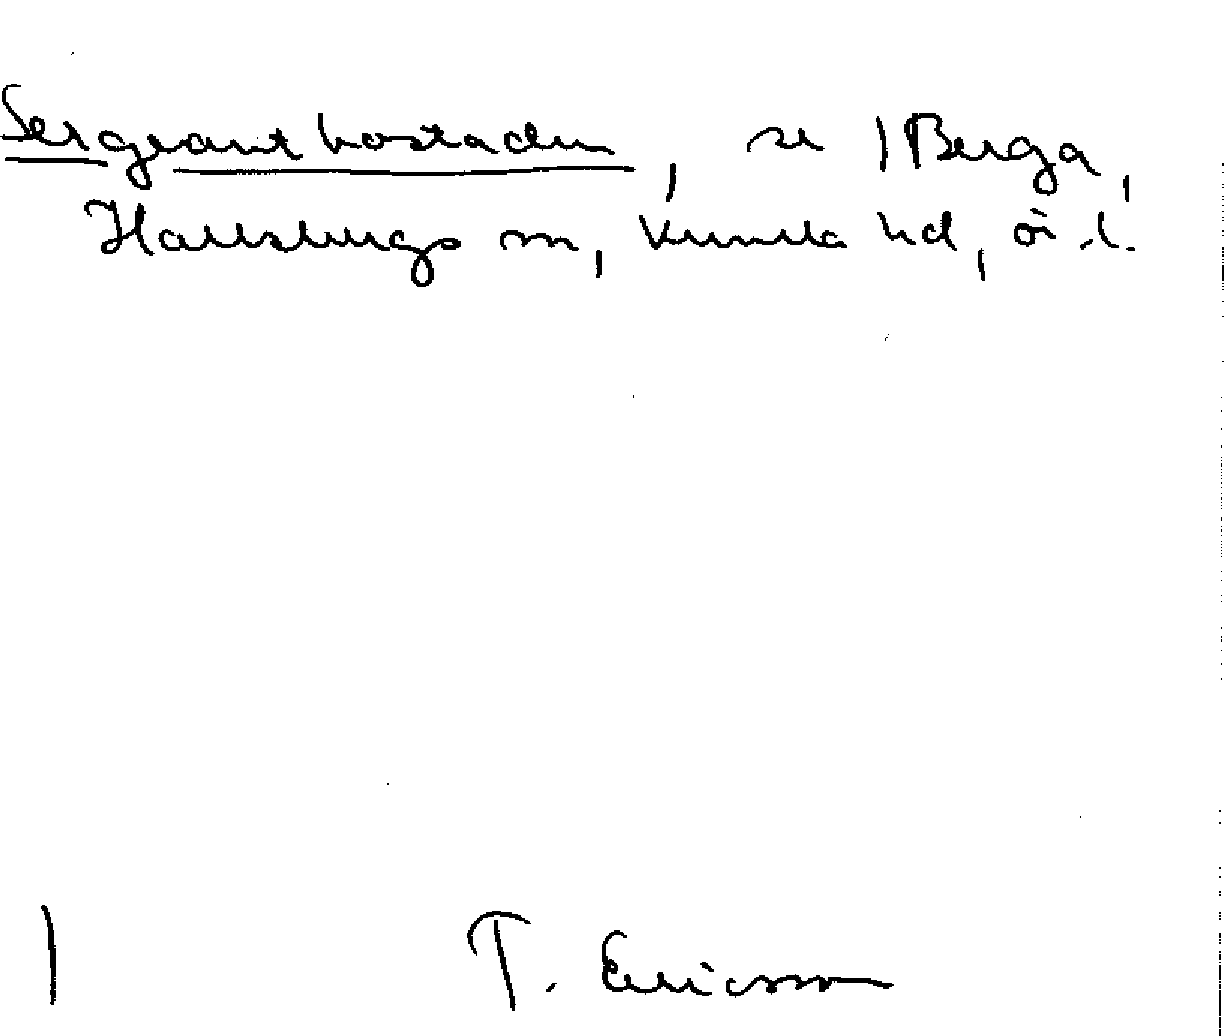 Sergeantbostaden, se 1 Berga,
Hallsbergs sn, Kumla hd, ö.l.
1 T. Ericsson